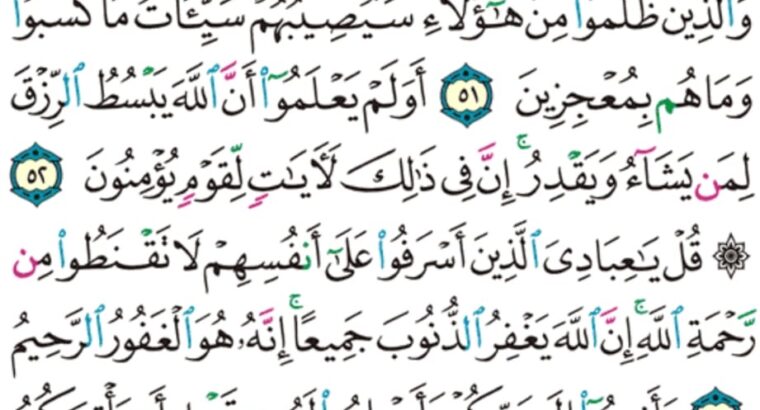 وَٱلَّذِينَ ظَلَمُوا۟ مِنْ هَٰٓؤُلَآءِ سَيُصِيبُهُمْ سَيِّـَٔاتُ مَا كَسَبُوا۟
وَمَا هُم بِمُعْجِزِينَ ٥١ أَوَلَمْ يَعْلَمُوٓا۟ أَنَّ ٱللَّهَ يَبْسُطُ ٱلرِّزْقَ
لِمَن يَشَآءُ وَيَقْدِرُ ۚ إِنَّ فِى ذَٰلِكَ لَـَٔايَٰتٍ لِّقَوْمٍ يُؤْمِنُونَ ٥٢
۞ قُلْ يَٰعِبَادِىَ ٱلَّذِينَ أَسْرَفُوا۟ عَلَىٰٓ أَنفُسِهِمْ لَا تَقْنَطُوا۟ مِن
رَّحْمَةِ ٱللَّهِ ۚ إِنَّ ٱللَّهَ يَغْفِرُ ٱلذُّنُوبَ جَمِيعًا ۚ إِنَّهُۥ هُوَ ٱلْغَفُورُ ٱلرَّحِيمُ